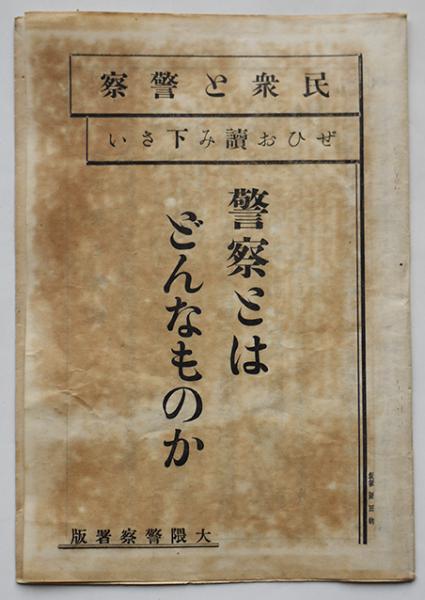 民衆と警察
ぜひお讀み下さい
警察とは
どんなものか
大隈警察署版